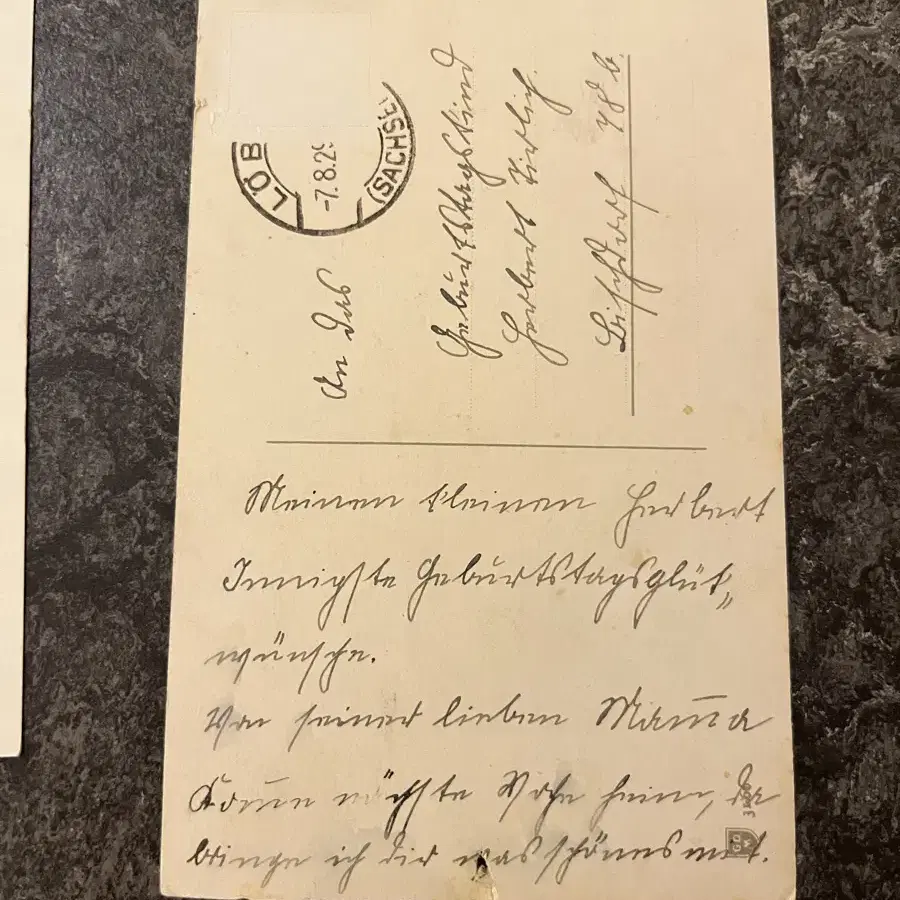 LÖB
-7.8.29
(SACHSE
An das
Geburtstagskind
Herbert
Bischdorf 48 b.
Meinen kleinen Herbert
Innigste Geburtstagsglük„
wünsche.
Von seiner lieben Mama
Komme nächste Woche heim, da
bringe ich dir was schönes mit.